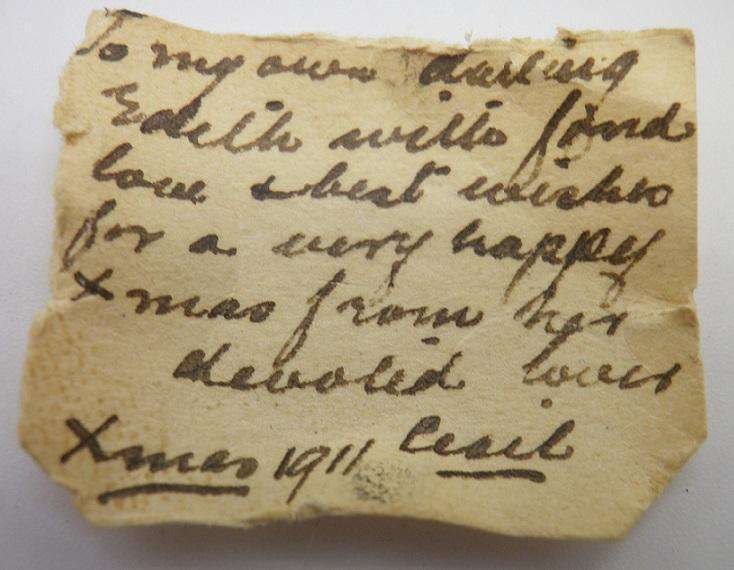 To my own darling
Edith with fond
love & best wishes
for a very happy
Xmas from her
devoted lover
Xmas 1911 Cecil